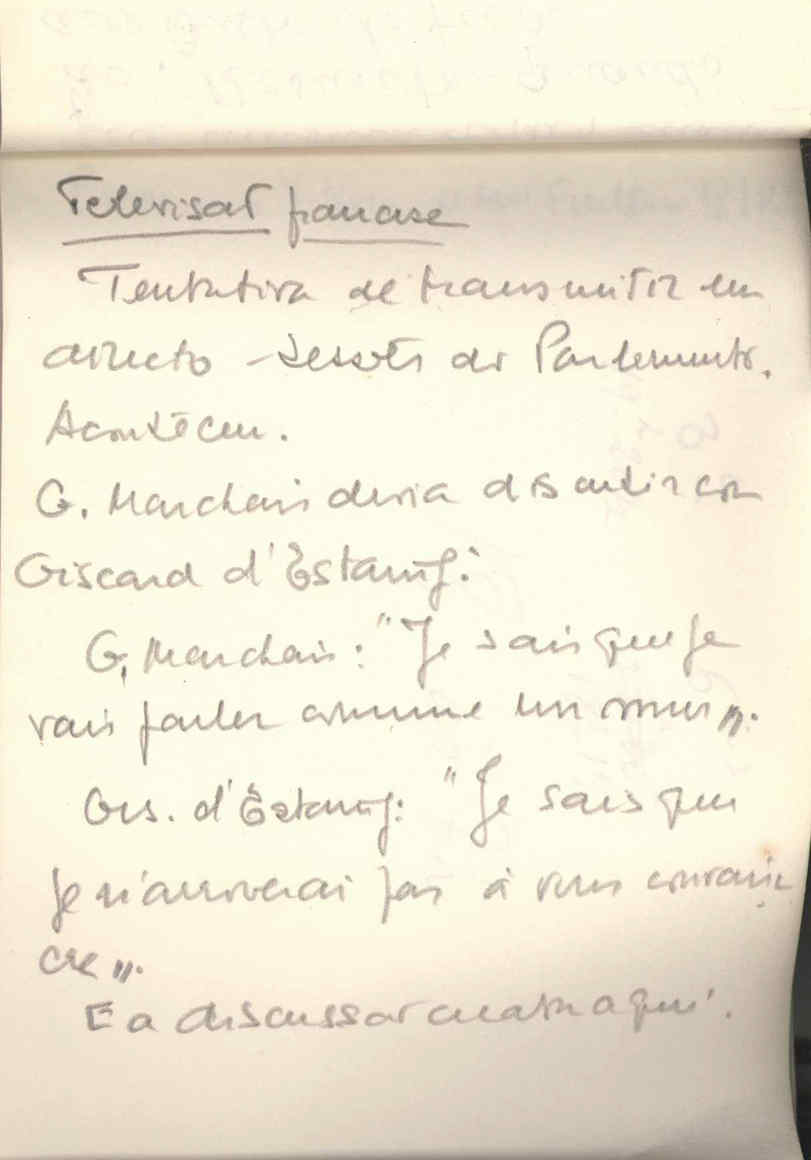 Televisão francese
Tentativa de transmitir em
directo sessões do Parlemento.
Aconteceu.
G. Marchais devia discutir com
Giscard d'Estaing:
G. Marchais: "Je sais que je
vais parler comme un mur".
Gis. d'Estaing: "Je sais que
je n'arriverai pas à vous convain
cre".
E a discussão acabou aqui.